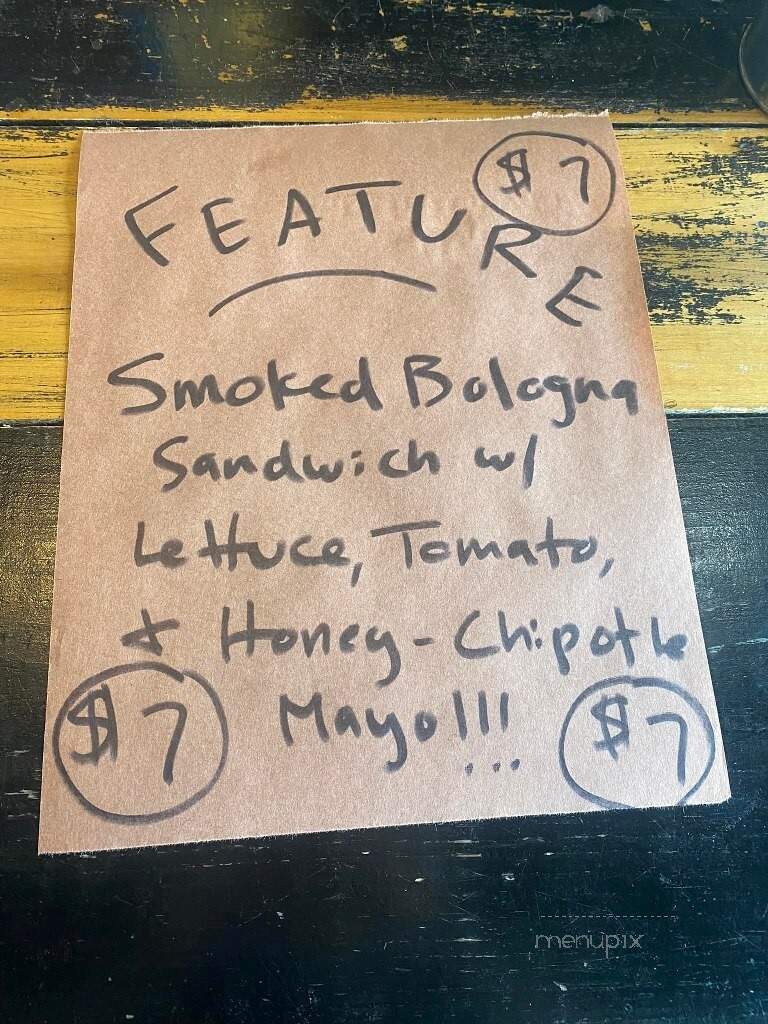 $7
FEATURE
Smoked Bologna
Sandwich w/
Lettuce, Tomato,
& Honey-Chipotle
Mayo!!!
$7
$7
menupix